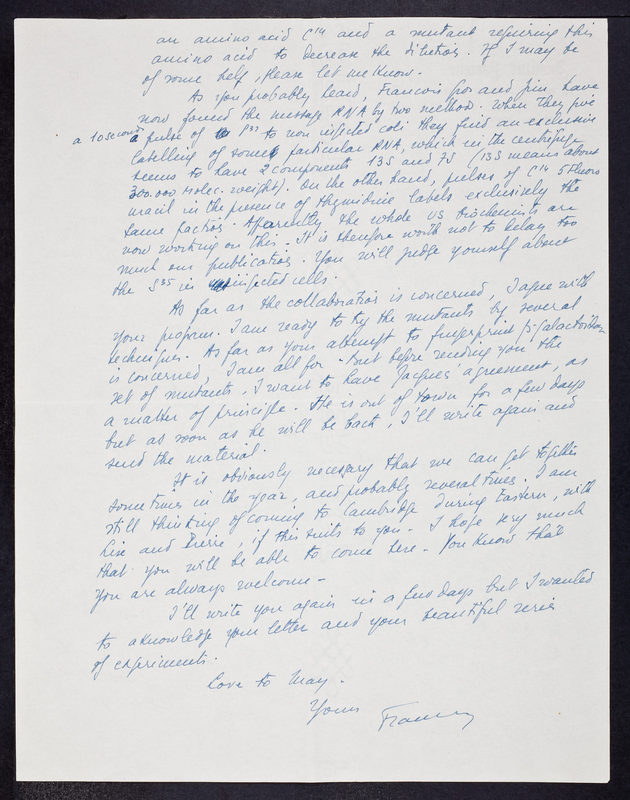 an amino acid C14 and a mutant requiring this
amino acid to decrease the dilution. If I may be
of some help, please let me know.
As you probably heard, Francois Gros and Jim have
now found the message RNA by two method. When they give
a 10 seconds pulse of P32 to non infected coli they find an exclusive
labelling of some particular RNA, which in the centrifuge
seems to have 2 components 13S and 7S (13S means about
300.000 molec. weight). On the other hand, pulses of C14 5 fluoro
uracil in the presence of thymidine labels exclusively the
same fraction. Apparently the whole US biochemists are
now working on this - It is therefore worth not to delay too
much our publication. You will judge yourself about
the S35 in injected cells.
As far as the collaboration is concerned, I agree with
your program. I am ready to try the mutants by several
techniques. As far as your attempt to fingerprint β-galactosidase
is concerned, I am all for - But before sending you the
set of mutants, I want to have Jacques' agreement, as
a matter of principle. He is out of town for a few days
but as soon as he will be back, I'll write again and
send the material.
It is obviously necessary that we can get together
sometimes in the year, and probably several times. I am
still thinking of coming to Cambridge during Eastern, with
Lise and Pierre, if this suits to you - I hope very much
that you will be able to come here - You know that
you are always welcome -
I'll write you again in a few days but I wanted
to aknowledge your letter and your beautiful series
of experiments.
Love to May.
Yours
Francois